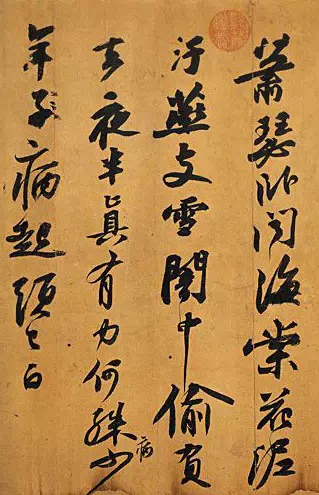 萧瑟卧闻海棠花泥
汙燕支雪闇中偷負
去夜半真有力何殊少
年子病起須已白
病